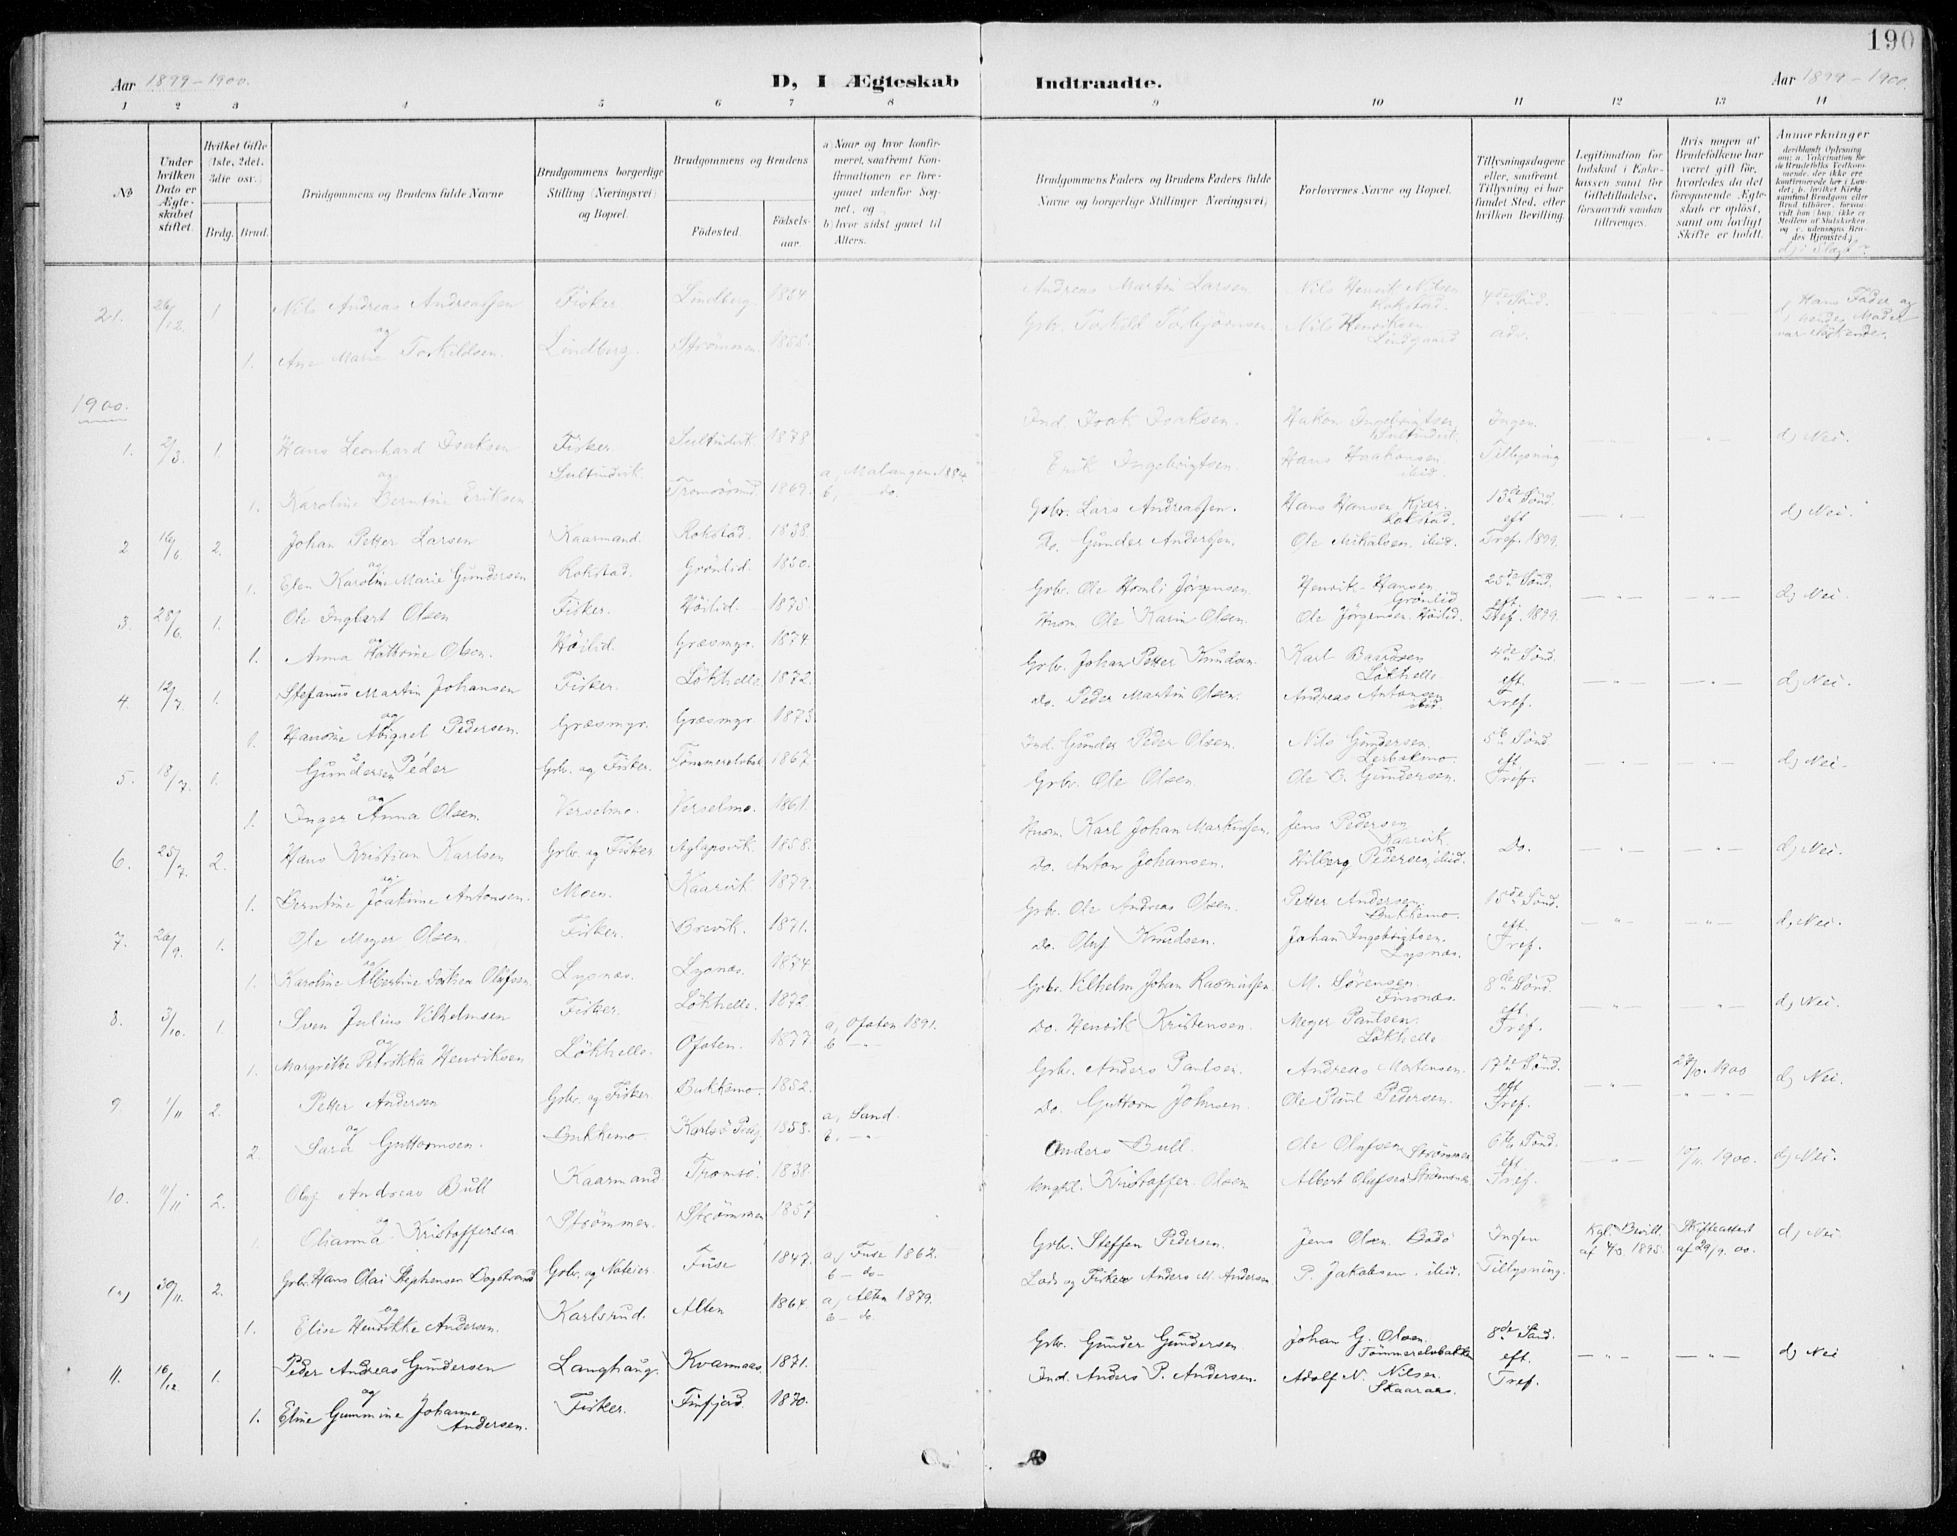 190
Aar 1899-1900.
D, I Ægteskab Indtraadte.
Aar 1899-1900.
1 2 3 4 5 6 7 8 9 10 11 12 13 14
No
Under hvilken Dato er Ægteskabet stiftet.
Hvilket Gifte (1ste, 2det, 3die osv.)
Brdg. Brud.
Brudgommens og Brudens fulde Navne
Brudgommens borgerlige Stilling (Næringsvei) og Bopæl.
Brudgommens og Brudens
Fødested.
Fødselsaar.
a Naar og hvor konfirmeret, saafremt Konfirmationen er foregaaet udenfor Sognet, og
b hvor sidst gaaet til Alters.
Brudgommens Faders og Brudens Faders fulde Navne og borgerlige Stillinger (Næringsvei)
Forlovernes Navne og Bopæl.
Tillysningsdagene eller, saafremt Tillysning ei har fundet Sted, efter hvilken Bevilling.
Legitimation for Indskud i Enkekassen samt for Giftetilladelse, forsaavidt saadan tiltrænges.
Hvis nogen af Brudefolkene har været gift før, hvorledes da det foregaaende Ægteskab er opløst, samt om lovligt Skifte er holdt.
Anmærkninger
21. 26/12. 1. Nils Andreas Andreassen Fisker Lindberg. 1854 Andreas Martin Larsen Nils Henrik Nilsen Rokstad. 4de Sønd. Hans Fader og
og
1. Ane Marie Torkildsen. Lindberg. Strømmen 1858. Grbr. Torkild Torbjørnsen. Nils Henriksen Lindgaard adv. hendes Moder var søskende.
1900.
1. 2/3. 1. Hans Leonhard Isaksen Fisker Sultindvik 1878 Ind. Isak Isaksen. Hakon Ingebrigtsen Sultindvik. Ingen d) Nei.
og
1. Karoline Berntine Eriksen. Sultindvik Tromsøsund 1869. a, Malangen 1884 b, - do. Erik Ingebrigtsen. Hans Haakonsen ibid. Tillysning
2 16/6 2. Johan Petter Larsen Kaarmand Rokstad. 1838. Grbr. Lars Andreassen. Hans Hansen Kjær. Rokstad. 13de Sønd. eft d) Nei.
og
1. Elen Karoline Marie Gundersen Rokstad. Grønlid. 1850. Do. Gunder Anderssen. Ole Mikalsen, ibid. Tref. 1899.
3. 28/6. 1. Ole Ingbart Olsen Fisker. Høilid. 1875. Grbr. Ole Homli Jørgensen. Henrik Hansen Grønlid 25de Sønd. eft. d) Nei.
og
1. Anna Hattorine Olsen. Høilid. Græsmyr. 1874. Husm. Ole Karin Olsen. Ole Jørgensen. Høilid. Tref. 1899.
4. 12/7. 1. Stefanus Martin Johansen Fisker. Løkhelle 1872. Grbr. Johan Petter Knudsen. Karl Baardsen Løkhelle. 4de Sønd. eft. d) Nei.
og
1. Hansine Abigael Pedersen. Græsmyr. Græsmyr. 1873. do. Peder Martin Olsen. Andreas Antonsen ibid. Tref.
5. 18/7. 1. Gundersen Peder Grbr. og Fisker. Tømmerelvbak 1867. Ind. Gunder Peder Olsen. Nils Gundersen. Leibakmo 5te Sønd eft d) Nei.
og
1. Inger Anna Olsen. Verselmo. Verselmo. 1861. Grbr. Ole Olsen. Ole B. Gundersen. Tref.
6. 25/7. 2. Hans Kristian Karlsen Grbr. og Fisker Aglapsvik. 1858. Husm. Karl Johan Markussen. Jens Pedersen Kaarvik. Do. d) Nei.
og
1. Berntine Joakime Antonsen. Moen. Kaarvik 1879. Do. Anton Johansen. Hilberg Pedersen, ibid.
7. 26/9. 1. Ole Meyer Olsen. Fisker. Brevik. 1871. Grbr. Ole Andreas Olsen. Petter Andersen. Bukkemo. 15de Sønd. eft. d) Nei.
og
1. Karoline Albertine Olufsen. Lysnes. Lysnes. 1874. Do. Oluf Knudsen. Johan Ingebrigtsen. Lysnes. Tref.
8. 3/10. 1. Sven Julius Vilhelmsen Fisker. Løkhelle. 1872 Grbr. Vilhelm Johan Rasmussen. M. Sørensen. Finsnes. 8de Sønd. eft d) Nei.
og
1. Margrethe Petrikka Henriksen Løkhelle. Ofoten. 1877 a, Ofoten 1891. b - Do. Henrik Kristensen. Meyer Paulsen. Løkhelle. Tref.
9 1/11 2. Petter Andersen Grbr. og Fisker. Bukkemo. 1852. Grbr. Anders Paulsen. Andreas Mortensen. 17de Sønd. eft 28/10. 1900 d) Nei.
og
2. Sara Guttormsen. Bukkemo. Karlsø 1858. a, Lund. b, - do. Guttorm Johnsen. Ole Paul Pedersen. Tref.
10. 11/11 2. Oluf Andreas Bull Kaarmand Tromsø. 1838. Anders Bull. Ole Olufsen Strømmen 6te Sønd. eft 10/11. 1900. d) Nei.
og
1. Olianna Kristoffersen Strømmen. Strømmen 1857 Kristoffer Olsen Albert Olufsen Strømsnes. Tref.
(a) 30/11. 2. Grbr. Hans Olai Stephensen Dogstrand Grbr. og Noteier. Fuse 1847. a) Fuse 1862. b - do - Grbr. Steffen Pedersen. Jens Olsen Bodø Ingen Kgl. Bevill. af 4/3. 1895. Skifteattest af 29/9. 00. d) Nei.
og
1. Elise Henrikke Andersen. Karlsrud. Alten 1864. a) Alten 1879. b - do. Lods og Fisker Anders M. Andersen P. Jakobsen. ibid. Tillysning.
11. 16/12. 1. Peder Andreas Gundersen Langhaug. Kvannaas 1871. Grbr. Gunder Gundersen. Johan G. Olsen. Tømmerelvbakken 8de Sønd. eft. d) Nei
og
1. Eline Gummine Johanne Andersen. Fisker. Finfjord. 1870. Ind. Anders P. Andersen. Adolf N. Nilsen. Skaaraas. Tref.